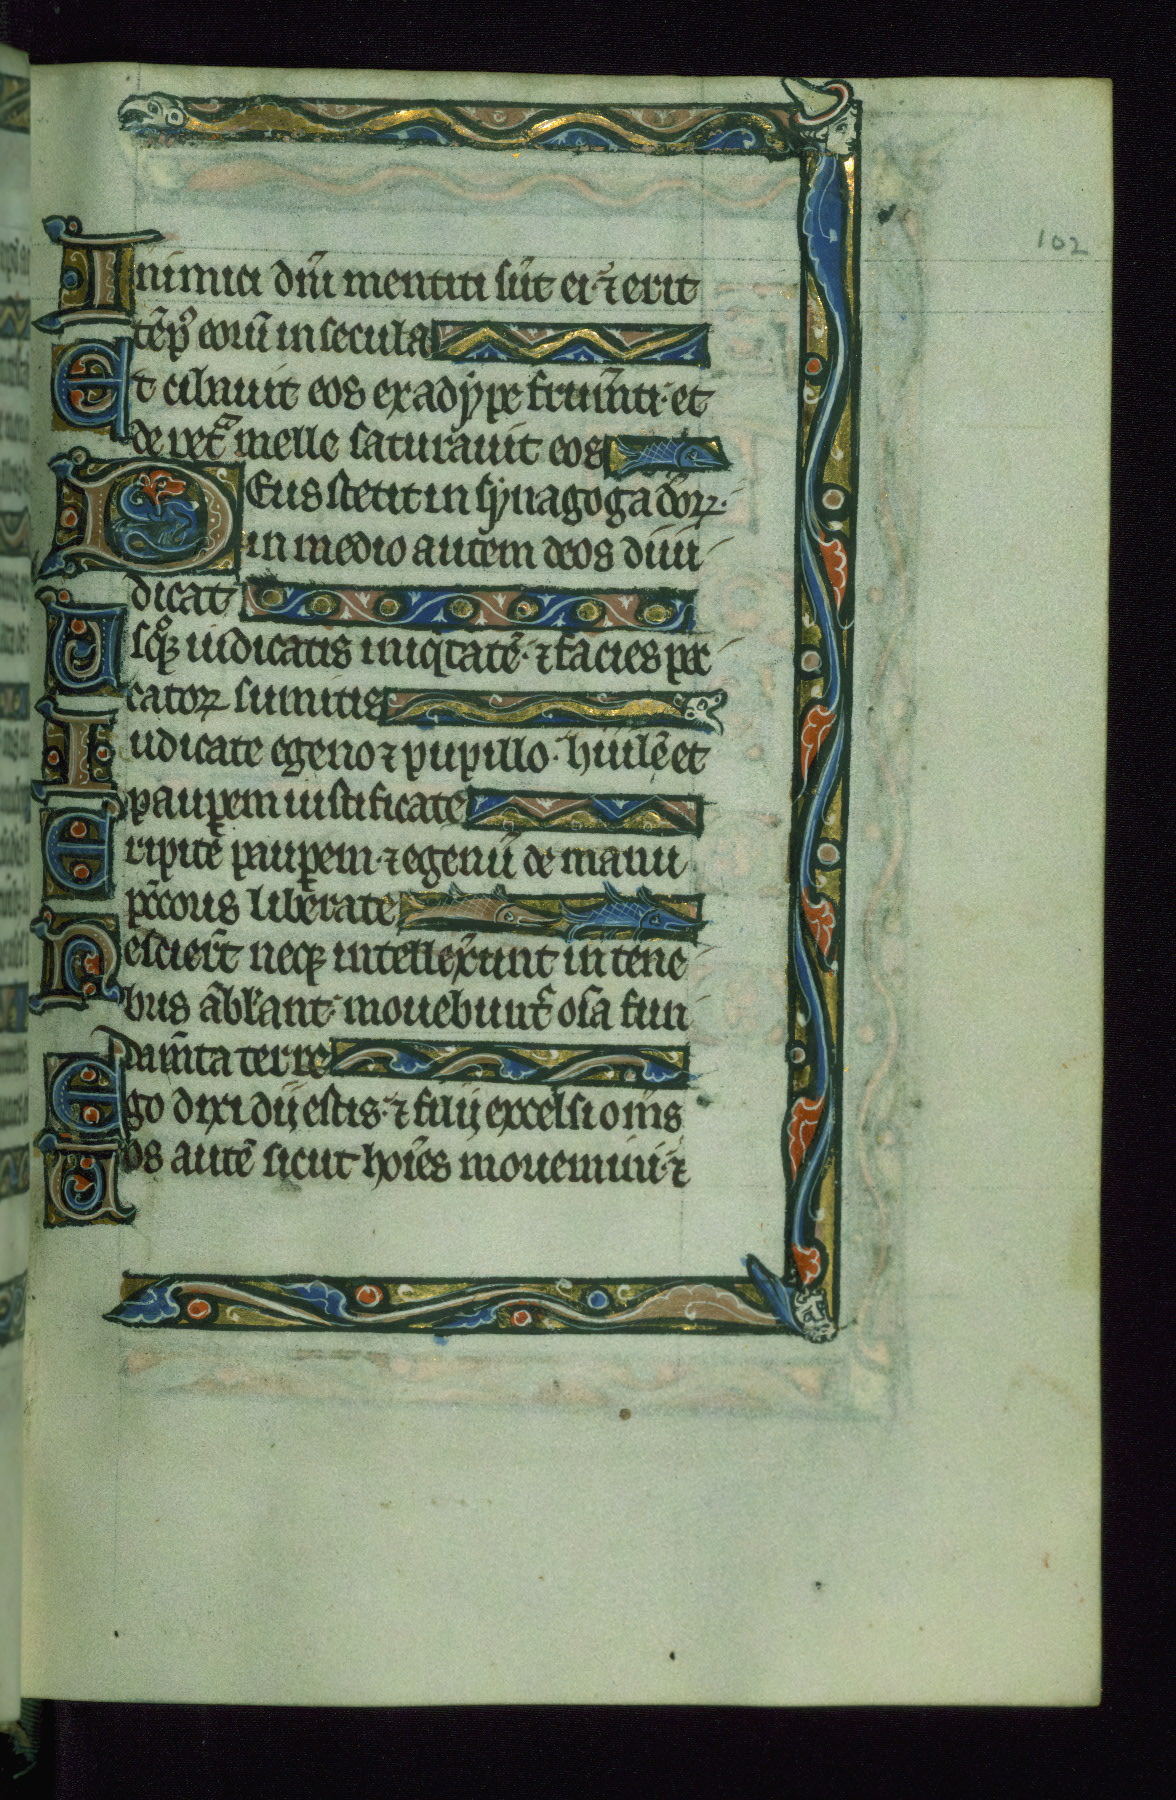 102
Inimici dn̄i mentiti sūt ei· ⁊ erit
tēpꝰ eorū in secula
Et cibauit eos ex adype frum̄ti· et
de petᵃ melle saturauit eos
DEus stetit in synagoga dōꝝ·
in medio autem deos diiu
dicat
Usqꝫ iudicatis iniqtatē· ⁊ facies pec
catoꝝ sumitis
Iudicate egeno ⁊ pupillo· hūilē et
pauꝑem iustificate
Eripite pauꝑem· ⁊ egenū de manu
pcc̄oris liberate
Nescier̄t neqꝫ intellexerunt in tene
bus ābl̓ant· mouebunt᷑ oīa fun
dam̄ta terre
Ego dixi dij estis· ⁊ filij excelsi om̄s
Uos autē sicut hoīes moriemini· ⁊